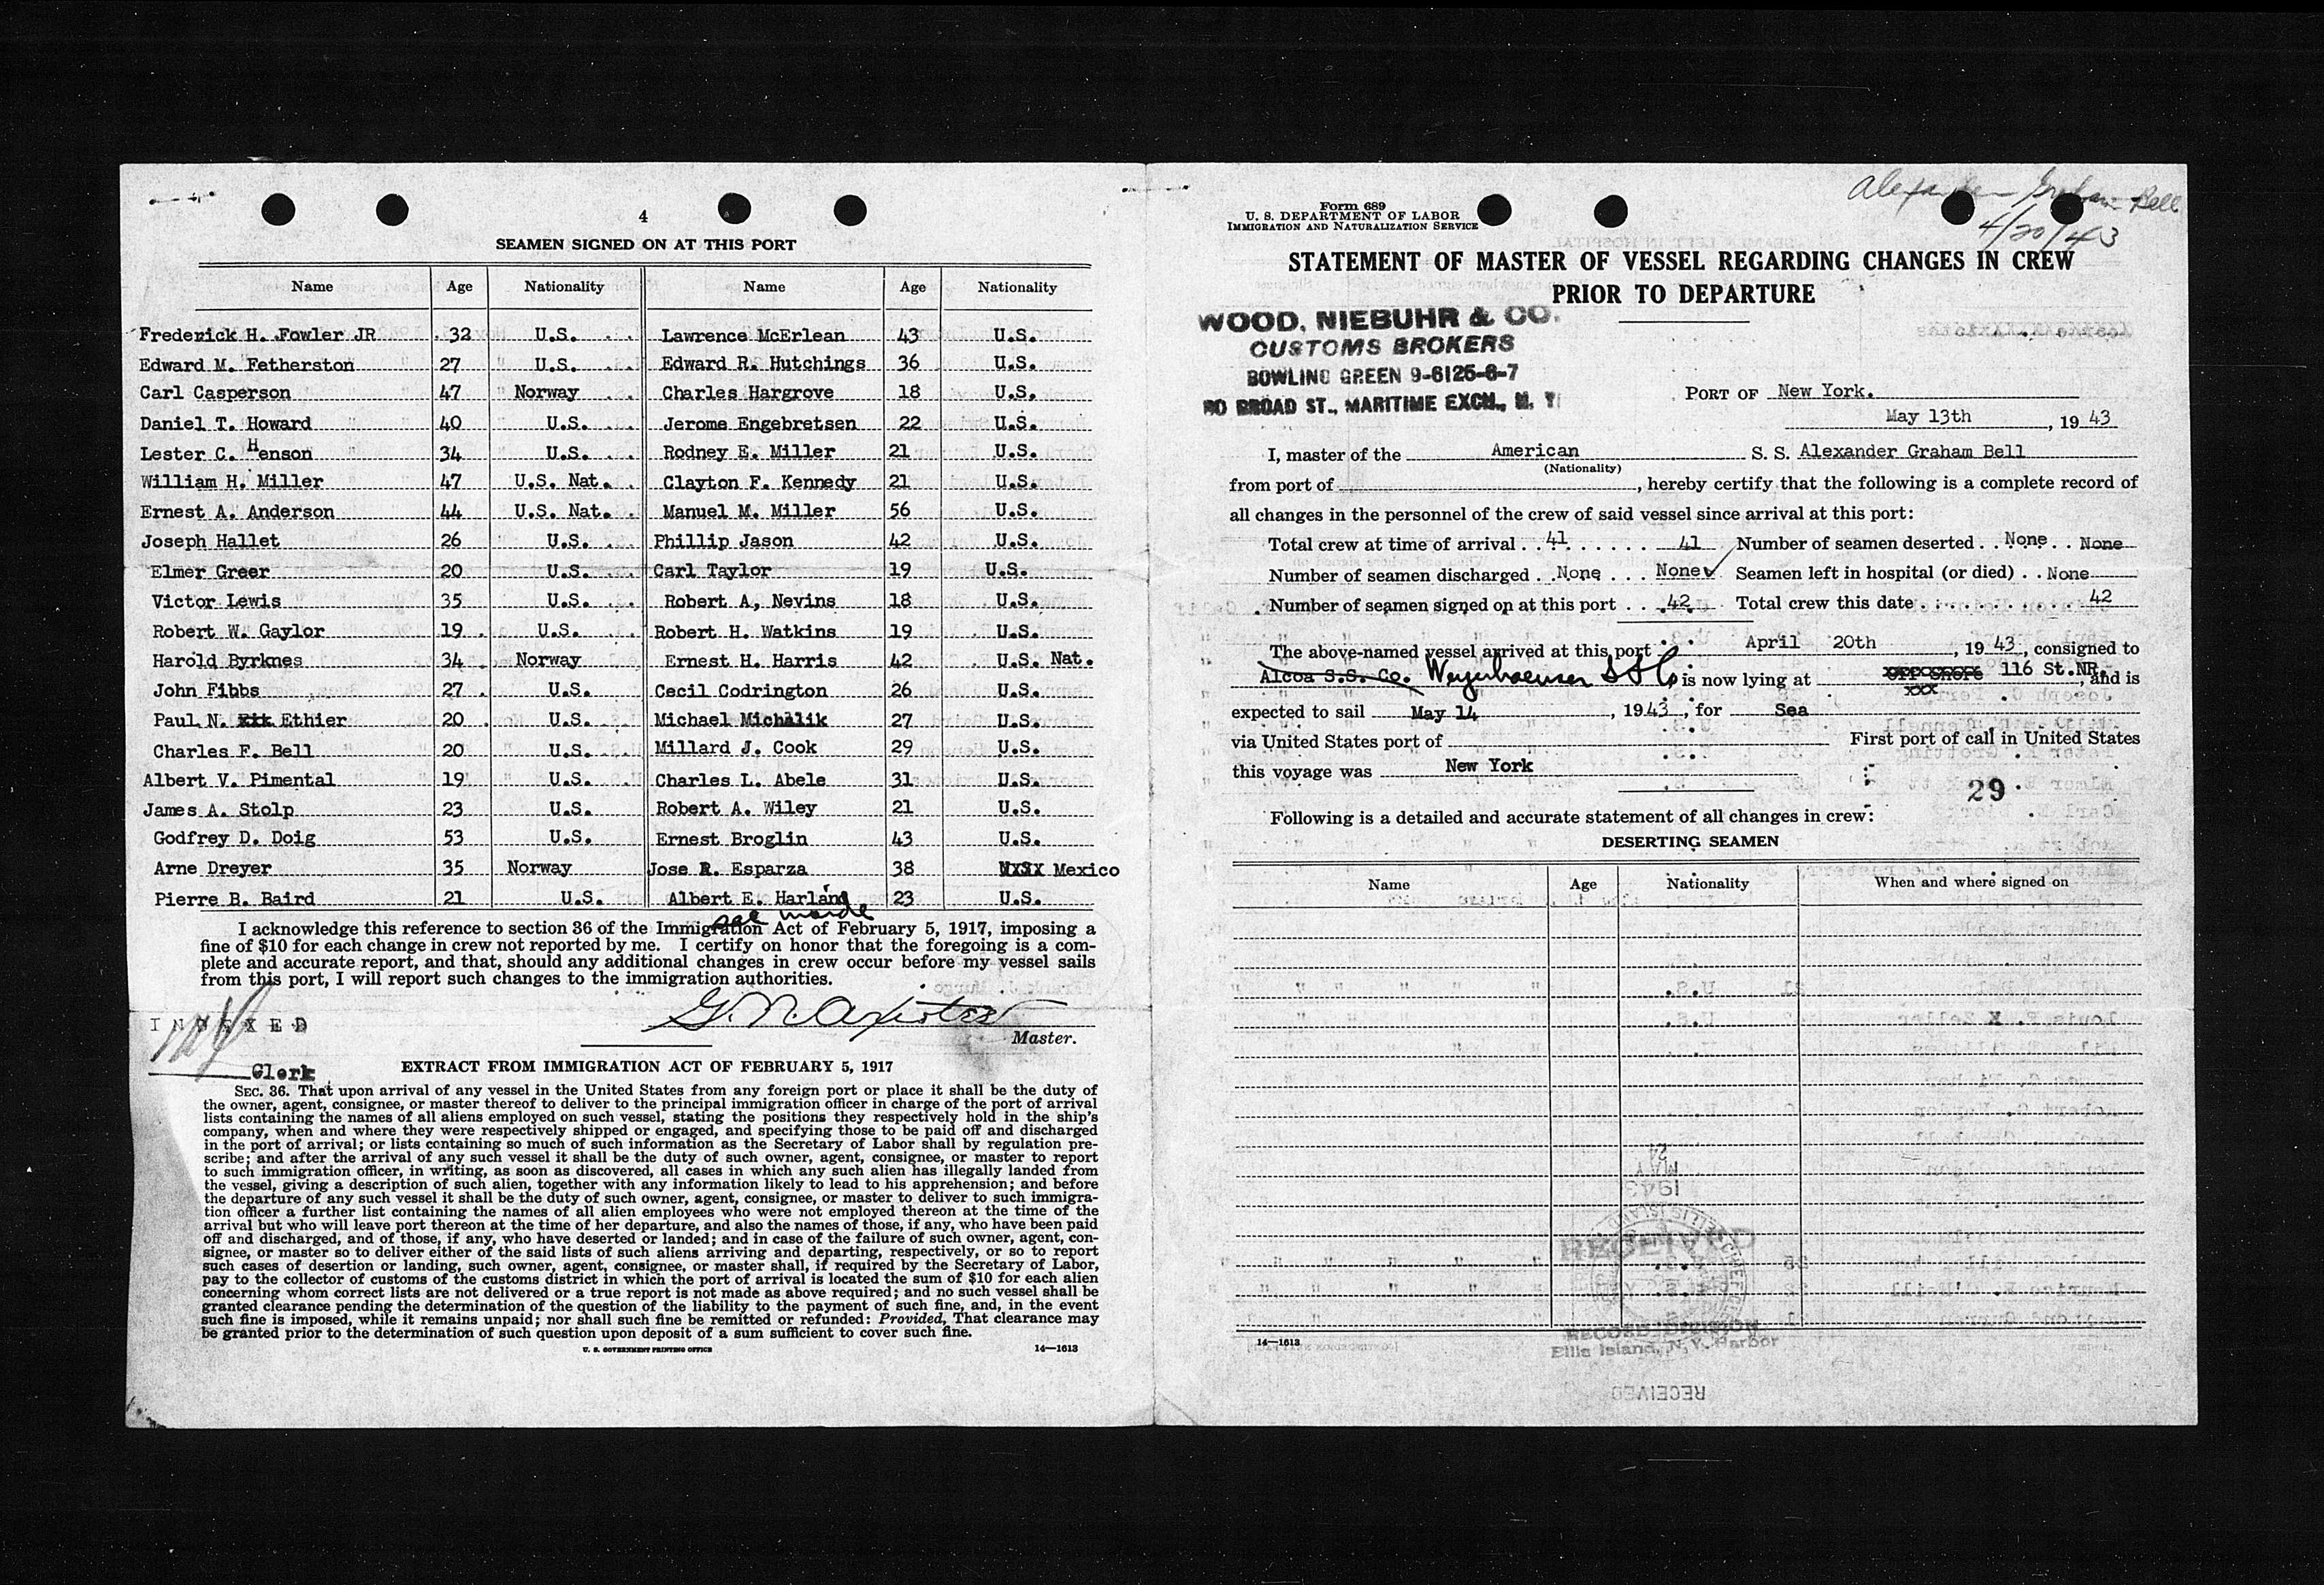 4
SEAMEN SIGNED ON AT THIS PORT
Name Age Nationality Name Age Nationality
Frederick H. Fowler JR 32 U.S. Lawrence McErlean 43 U.S.
Edward M. Fetherston 27 U.S. Edward R. Hutchings 36 U.S.
Carl Casperson 47 Norway Charles Hargrove 18 U.S.
Daniel T. Howard 40 U.S. Jerome Engebretsen 22 U.S.
Lester C. Henson 34 U.S. Rodney E. Miller 21 U.S.
William H. Miller 47 U.S. Nat. Clayton F. Kennedy 21 U.S.
Ernest A. Anderson 44 U.S. Nat. Manuel M. Miller 56 U.S.
Joseph Hallet 26 U.S. Phillip Jason 42 U.S.
Elmer Greer 20 U.S. Carl Taylor 19 U.S.
Victor Lewis 35 U.S. Robert A, Nevins 18 U.S.
Robert W. Gaylor 19 U.S. Robert H. Watkins 19 U.S.
Harold Byrknes 34 Norway Ernest H. Harris 42 U.S. Nat.
John Fibbs 27 U.S. Cecil Codrington 26 U.S.
Paul N. Ethier 20 U.S. Michael Michalik 27 U.S.
Charles F. Bell 20 U.S. Millard J. Cook 29 U.S.
Albert V. Pimental 19 U.S. Charles L. Abele 31 U.S.
James A. Stolp 23 U.S. Robert A. Wiley 21 U.S.
Godfrey D. Doig 53 U.S. Ernest Broglin 43 U.S.
Arne Dreyer 35 Norway Jose R. Esparza 38 Mexico
Pierre B. Baird 21 U.S. Albert E. Harland 23 U.S.
see inside
I acknowledge this reference to section 36 of the Immigration Act of February 5, 1917, imposing a
fine of $10 for each change in crew not reported by me. I certify on honor that the foregoing is a com-
plete and accurate report, and that, should any additional changes in crew occur before my vessel sails
from this port, I will report such changes to the immigration authorities.
INDEXED
Master.
Clerk
EXTRACT FROM IMMIGRATION ACT OF FEBRUARY 5, 1917
SEC. 36. That upon arrival of any vessel in the United States from any foreign port or place it shall be the duty of
the owner, agent, consignee, or master thereof to deliver to the principal immigration officer in charge of the port of arrival
lists containing the names of all aliens employed on such vessel, stating the positions they respectively hold in the ship's
company, when and where they were respectively shipped or engaged, and specifying those to be paid off and discharged
in the port of arrival; or lists containing so much of such information as the Secretary of Labor shall by regulation pre-
scribe; and after the arrival of any such vessel it shall be the duty of such owner, agent, consignee, or master to report
to such immigration officer, in writing, as soon as discovered, all cases in which any such alien has illegally landed from
the vessel, giving a description of such alien, together with any information likely to lead to his apprehension; and before
the departure of any such vessel it shall be the duty of such owner, agent, consignee, or master to deliver to such immigra-
tion officer a further list containing the names of all alien employees who were not employed thereon at the time of the
arrival but who will leave port thereon at the time of her departure, and also the names of those, if any, who have been paid
off and discharged, and of those, if any, who have deserted or landed; and in case of the failure of such owner, agent, con-
signee, or master so to deliver either of the said lists of such aliens arriving and departing, respectively, or so to report
such cases of desertion or landing, such owner, agent, consignee, or master shall, if required by the Secretary of Labor,
pay to the collector of customs of the customs district in which the port of arrival is located the sum of $10 for each alien
concerning whom correct lists are not delivered or a true report is not made as above required; and no such vessel shall be
granted clearance pending the determination of the question of the liability to the payment of such fine, and, in the event
such fine is imposed, while it remains unpaid; nor shall such fine be remitted or refunded: Provided, That clearance may
be granted prior to the determination of such question upon deposit of a sum sufficient to cover such fine.
U. S. GOVERNMENT PRINTING OFFICE 14—1613
Alexander Graham Bell
4/20/43
Form 689
U. S. DEPARTMENT OF LABOR
IMMIGRATION AND NATURALIZATION SERVICE
STATEMENT OF MASTER OF VESSEL REGARDING CHANGES IN CREW
PRIOR TO DEPARTURE
WOOD, NIEBUHR & CO.
CUSTOMS BROKERS
BOWLING GREEN 9-6125-6-7
80 BROAD ST., MARITIME EXCH., N. Y.
PORT OF New York.
May 13th, 19 43
I, master of the American S. S. Alexander Graham Bell
(Nationality)
from port of , hereby certify that the following is a complete record of
all changes in the personnel of the crew of said vessel since arrival at this port:
Total crew at time of arrival 41 41 Number of seamen deserted None None
Number of seamen discharged None None Seamen left in hospital (or died) None
Number of seamen signed on at this port 42 Total crew this date 42
The above-named vessel arrived at this port April 20th, 19 43, consigned to
Alcoa S.S. Co. Weyerhaeuser S S Co, is now lying at 116 St. NR, and is
expected to sail May 14, 1943, for Sea
via United States port of First port of call in United States
this voyage was New York
29
Following is a detailed and accurate statement of all changes in crew:
DESERTING SEAMEN
Name Age Nationality When and where signed on
MAY 24 1943
RECEIVED
RECORD DIVISION
Ellis Island, N.Y. Harbor
14—1613
RECEIVED